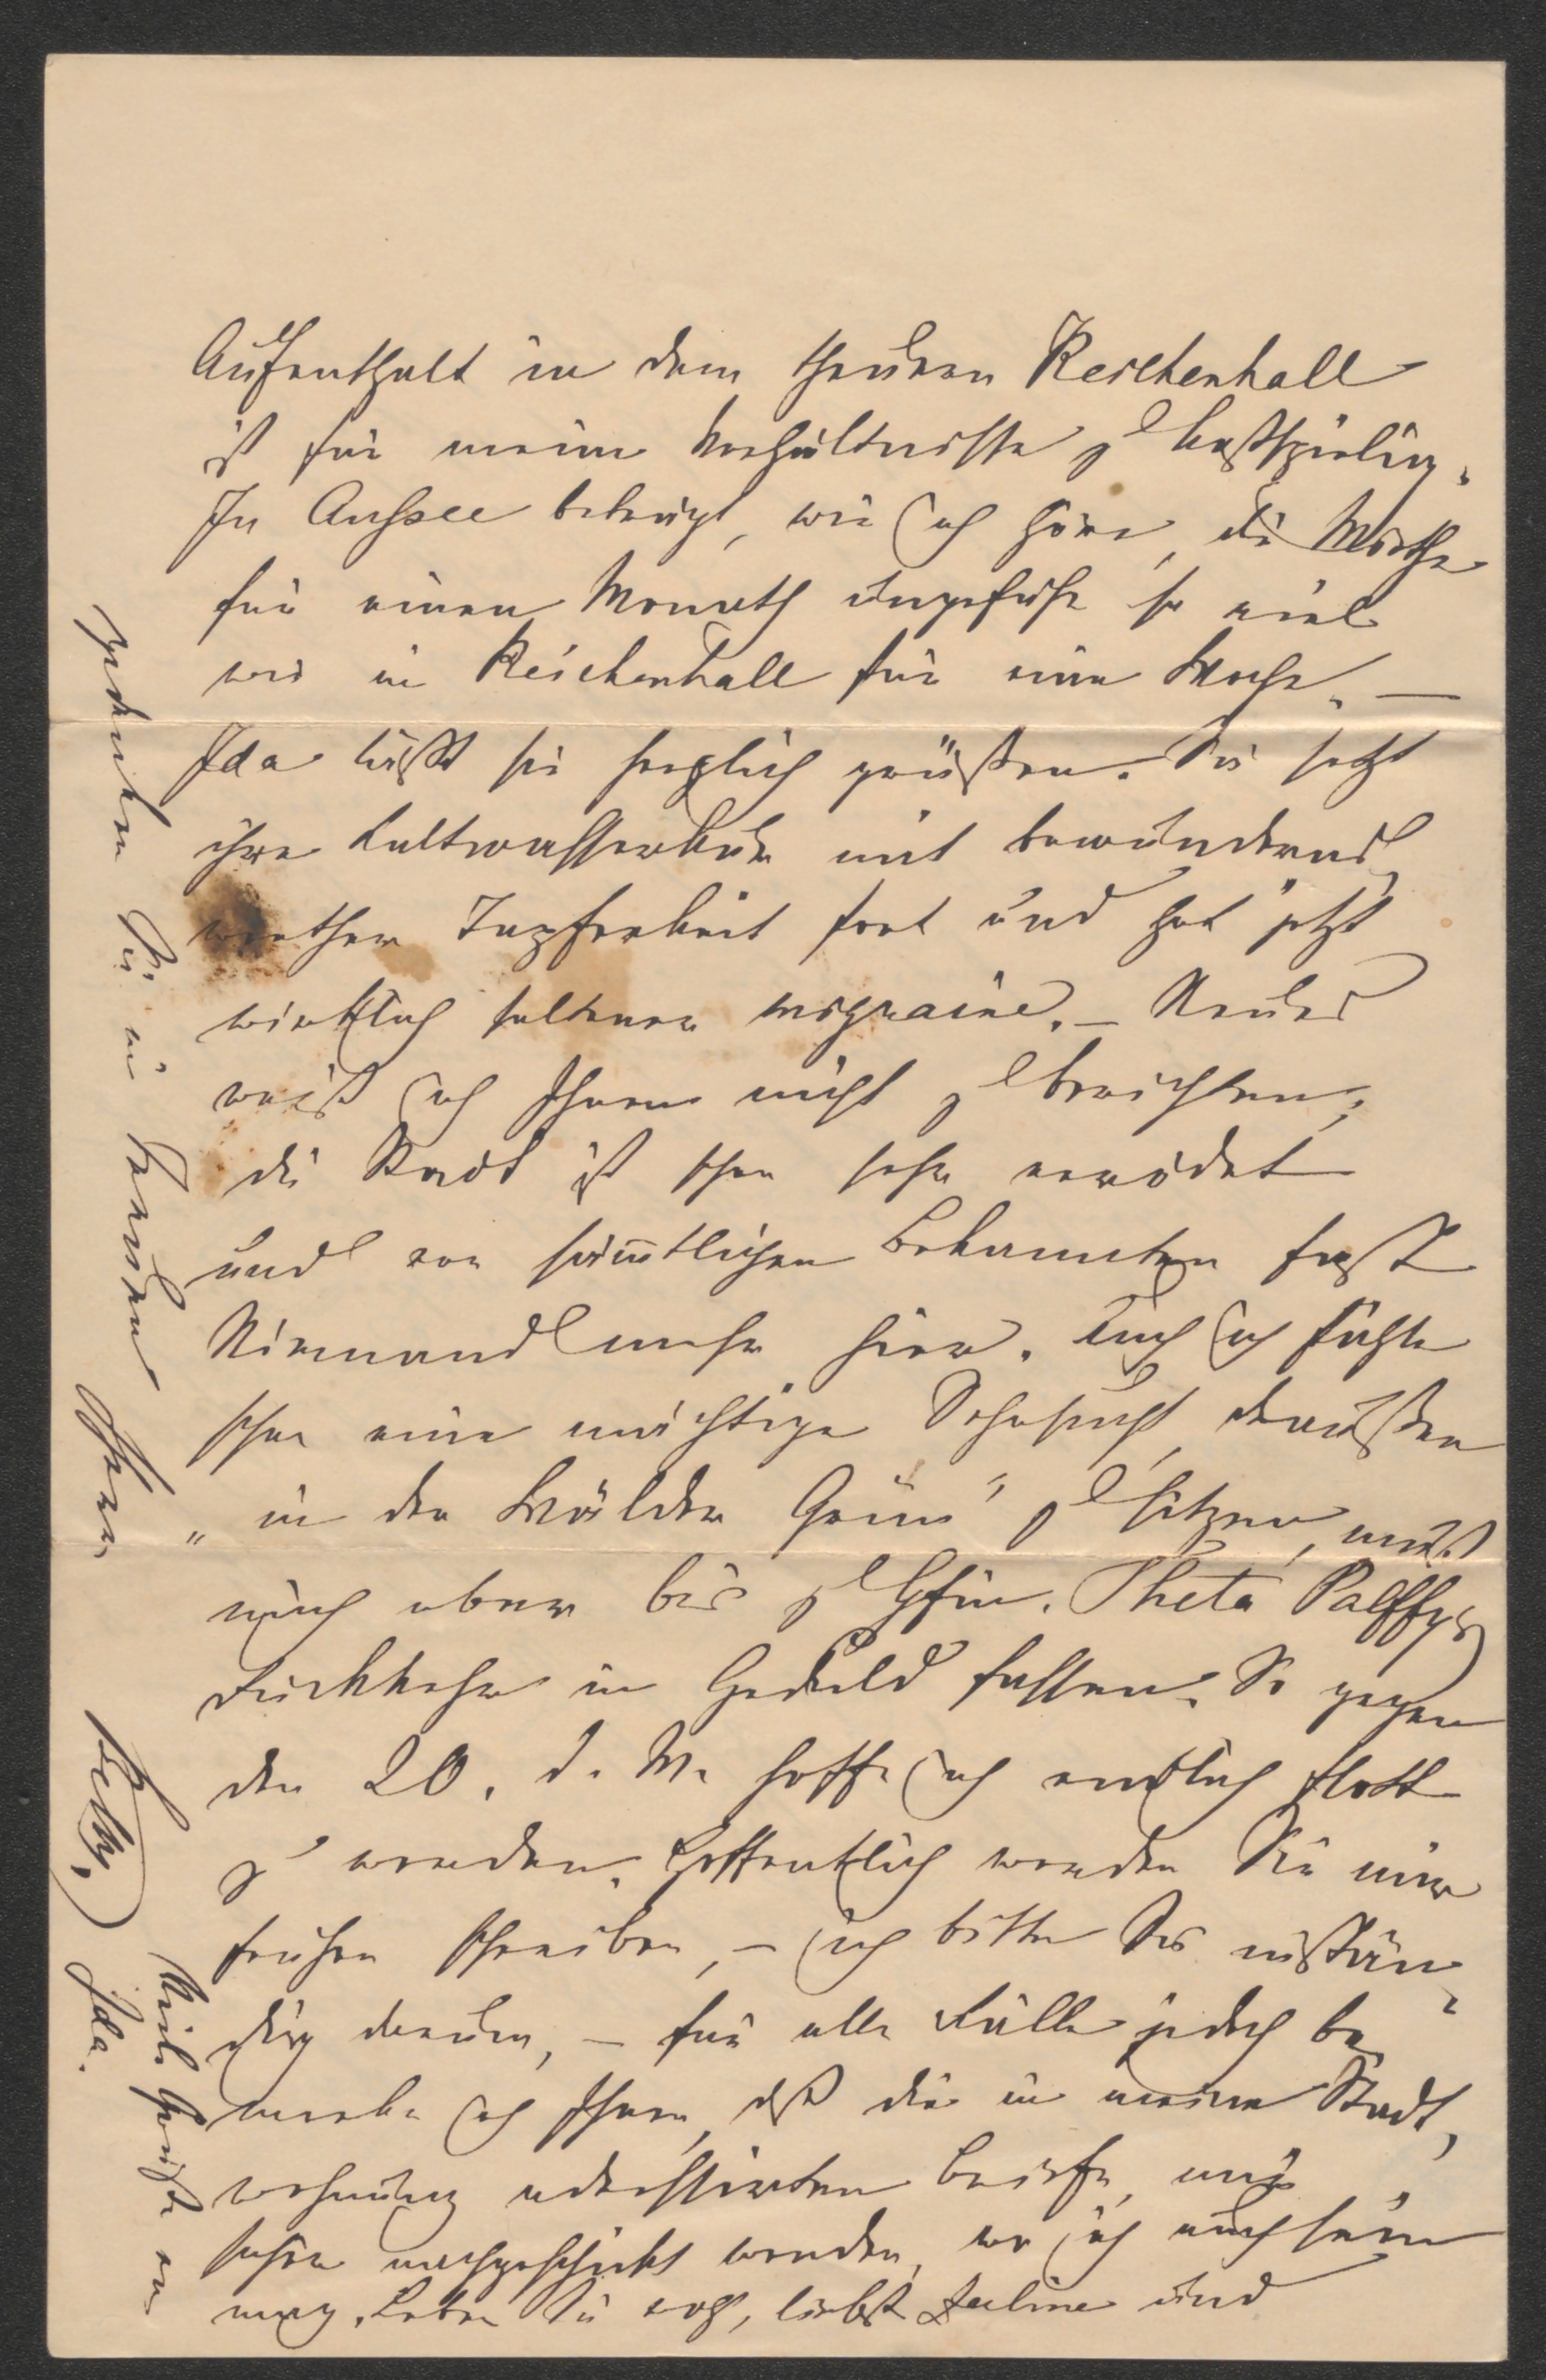 Aufenthalt in dem theuren Reichenhall
ist für meine Verhältnisse zu kostspielig.
In Aussee beträgt, wie ich höre, die Miethe
für einen Monath ungefähr so viel
wie in Reichenhall für eine Woche. –
Ida läßt sie herzlich grüßen. Sie setzt
ihre Kaltwasserkur mit bewunderns
werther Tapferkeit fort und hat jetzt
wirklich seltener migraine. – Neues
weiß ich Ihnen nicht zu berichten;
die Stadt ist schon sehr verödet
und von säm̅tlichen Bekannten fast
Niemand mehr hier. Auch ich fühle
schon eine mächtige Sehnsucht, draußen
„in der Wälder Grün" zu sitzen, muß
mich aber bis zu Gfin. Theta Palffys
Rückkehr in Geduld fassen. So gegen
den 20. d. M. hoffe ich endlich flott
zu werden. Hoffentlich werden Sie mir
früher schreiben, – ich bitte Sie instän-
dig darum, – für alle Fälle jedoch be
merke ich Ihnen, daß die in meine Stadt,
wohnung adressirten Briefe, mir
sicher nachgeschickt werden, wo ich auch sein
mag. Leben Sie wohl, liebste und
gedenken Sie in Ihrer
Betty.
Viele Grüße von
Ida.